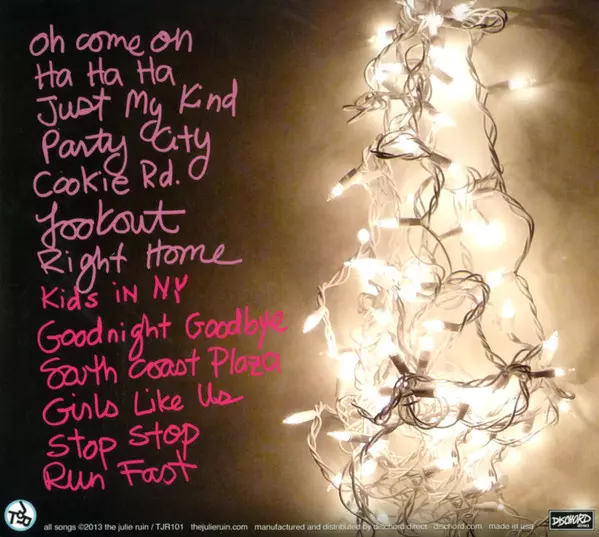 oh come on
Ha Ha Ha
Just My Kind
Party City
Cookie Rd.
Lookout
Right Home
Kids in NY
Goodnight Goodbye
South Coast Plaza
Girls Like Us
Stop Stop
Run Fast
TJR
all songs ©2013 the julie ruin / TJR101 thejulieruin.com manufactured and distributed by dischord direct dischord.com made in usa
DISCHORD
DIRECT